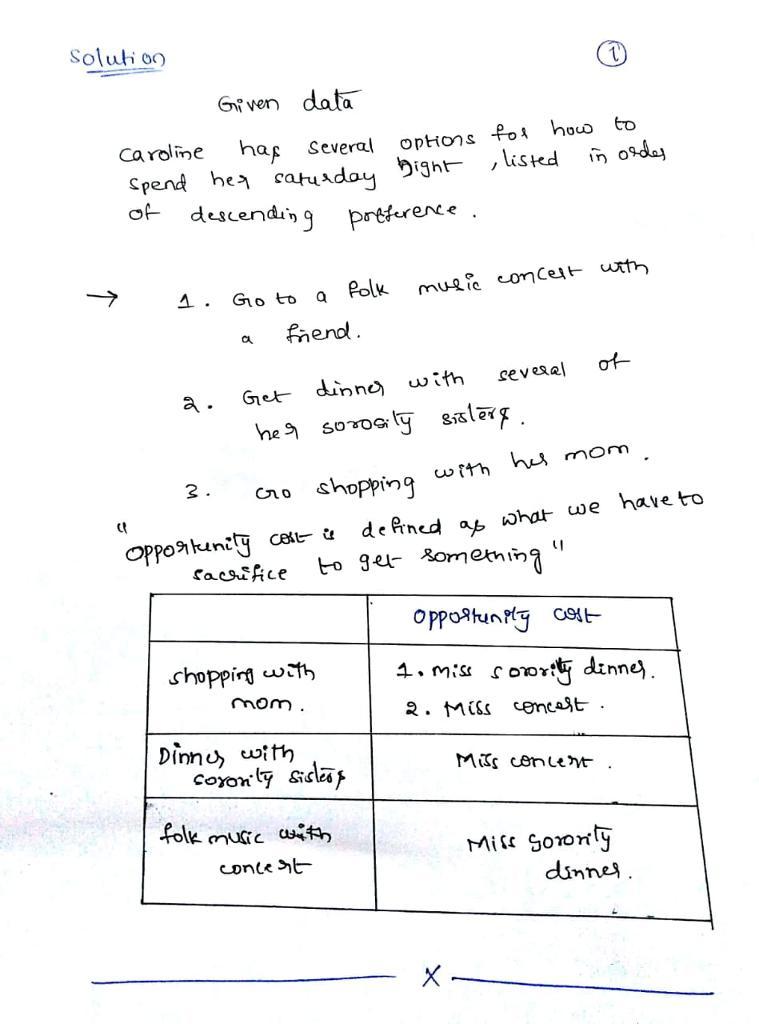 Solution
1
Given data
Caroline has several options for how to
spend her saturday night, listed in order
of descending preference.
→ 1. Go to a folk music concert with
a friend.
2. Get dinner with several of
her sorority sisters.
3. Go shopping with her mom.
"Opportunity cost is defined as what we have to
sacrifice to get something"
Opportunity cost
shopping with
mom.
1. Miss sorority dinner.
2. Miss concert.
Dinner with
sorority sisters
Miss concert.
folk music with
concert
Miss sorority
dinner.
X